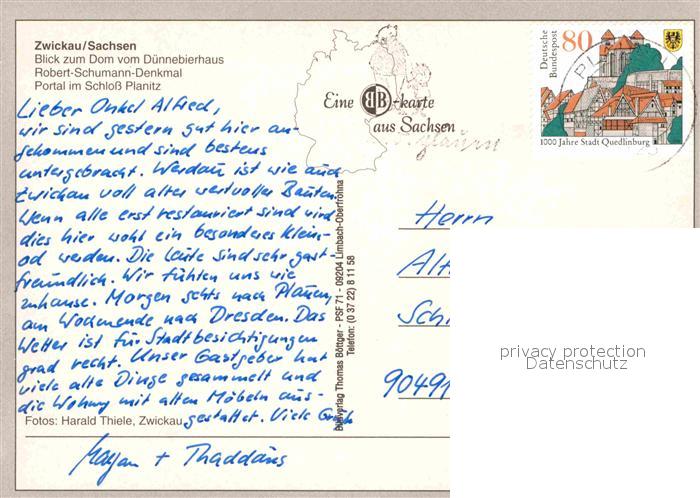 Zwickau/Sachsen
Blick zum Dom vom Dünnebierhaus
Robert-Schumann-Denkmal
Portal im Schloß Planitz
Lieber Onkel Alfred,
wir sind gestern gut hier an-
gekommen und sind bestens
untergebracht. Werdau ist wie auch
Zwickau voll alter wertvoller Bauten.
Wenn alle erst restauriert sind wird
dies hier wohl ein besonderes Klein-
od werden. Die Leute sind sehr gast-
freundlich. Wir fühlen uns wie
zuhause. Morgen gehts nach Plauen,
am Wochenende nach Dresden. Das
Wetter ist für Stadtbesichtigungen
grad recht. Unser Gastgeber hat
viele alte Dinge gesammelt und
die Wohnung mit alten Möbeln aus-
gestaltet. Viele Grüße
Fotos: Harald Thiele, Zwickau
+ Thaddäus
Eine BB-karte
aus Sachsen
Bildverlag Thomas Böttger - PSF 71 - 09204 Limbach-Oberfrohna
Telefon: (0 37 22) 8 11 58
Deutsche
Bundespost
80
1000 Jahre Stadt Quedlinburg
Herrn
Alf
Sch
90491
privacy protection
Datenschutz